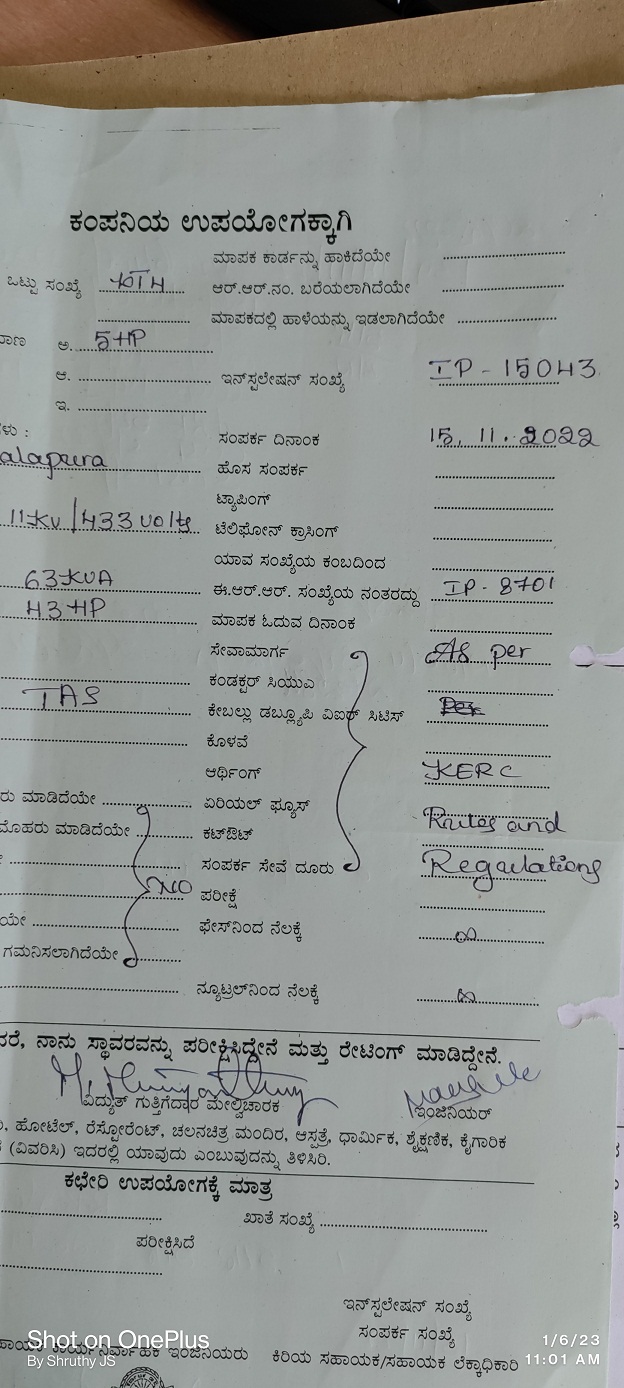 ಕಂಪನಿಯ ಉಪಯೋಗಕ್ಕಾಗಿ
ಮಾಪಕ ಕಾರ್ಡನ್ನು ಹಾಕಿದೆಯೇ
ಒಟ್ಟು ಸಂಖ್ಯೆ ಆರ್.ಆರ್.ನಂ. ಬರೆಯಲಾಗಿದೆಯೇ
ಮಾಪಕದಲ್ಲಿ ಹಾಳೆಯನ್ನು ಇಡಲಾಗಿದೆಯೇ
ಅ. 5HP
ಆ. ಇನ್‌ಸ್ಟಲೇಷನ್ ಸಂಖ್ಯೆ IP-15043
ಇ.
ಸಂಪರ್ಕ ದಿನಾಂಕ 15.11.2022
alapura ಹೊಸ ಸಂಪರ್ಕ
ಟ್ಯಾಪಿಂಗ್
11KV/433 volts ಟೆಲಿಫೋನ್ ಕ್ರಾಸಿಂಗ್
ಯಾವ ಸಂಖ್ಯೆಯ ಕಂಬದಿಂದ
63KVA ಈ.ಆರ್.ಆರ್. ಸಂಖ್ಯೆಯ ನಂತರದ್ದು IP-8701
43HP ಮಾಪಕ ಓದುವ ದಿನಾಂಕ
ಸೇವಾಮಾರ್ಗ As per
ಕಂಡಕ್ಟರ್ ಸಿಯುಎ
TAS ಕೇಬಲ್ಲು ಡಬ್ಲ್ಯೂಪಿ ವಿಐಆರ್ ಸಿಟಿಸ್
ಕೊಳವೆ
ಆರ್ಥಿಂಗ್ KERC
ರು ಮಾಡಿದೆಯೇ ಏರಿಯಲ್ ಫ್ಯೂಸ್ Rules and
ಮೊಹರು ಮಾಡಿದೆಯೇ ಕಟ್‌ಔಟ್
ಸಂಪರ್ಕ ಸೇವೆ ದೂರು Regulations
NO ಪರೀಕ್ಷೆ
ಯೇ ಫೇಸ್‌ನಿಂದ ನೆಲಕ್ಕೆ ∞
ಗಮನಿಸಲಾಗಿದೆಯೇ
ನ್ಯೂಟ್ರಲ್‌ನಿಂದ ನೆಲಕ್ಕೆ ∞
ದರೆ, ನಾನು ಸ್ಥಾವರವನ್ನು ಪರೀಕ್ಷಿಸಿದ್ದೇನೆ ಮತ್ತು ರೇಟಿಂಗ್ ಮಾಡಿದ್ದೇನೆ.
ವಿದ್ಯುತ್ ಗುತ್ತಿಗೆದಾರ ಮೇಲ್ವಿಚಾರಕ ಇಂಜಿನಿಯರ್
ಹೋಟೆಲ್, ರೆಸ್ಟೋರೆಂಟ್, ಚಲನಚಿತ್ರ ಮಂದಿರ, ಆಸ್ಪತ್ರೆ, ಧಾರ್ಮಿಕ, ಶೈಕ್ಷಣಿಕ, ಕೈಗಾರಿಕ
(ವಿವರಿಸಿ) ಇದರಲ್ಲಿ ಯಾವುದು ಎಂಬುವುದನ್ನು ತಿಳಿಸಿರಿ.
ಕಛೇರಿ ಉಪಯೋಗಕ್ಕೆ ಮಾತ್ರ
ಖಾತೆ ಸಂಖ್ಯೆ
ಪರೀಕ್ಷಿಸಿದೆ
ಇನ್‌ಸ್ಟಲೇಷನ್ ಸಂಖ್ಯೆ
ಸಂಪರ್ಕ ಸಂಖ್ಯೆ
ಕಾರ್ಯನಿರ್ವಾಹಕ ಇಂಜಿನಿಯರು ಕಿರಿಯ ಸಹಾಯಕ/ಸಹಾಯಕ ಲೆಕ್ಕಾಧಿಕಾರಿ
Shot on OnePlus
By Shruthy JS
1/6/23
11:01 AM